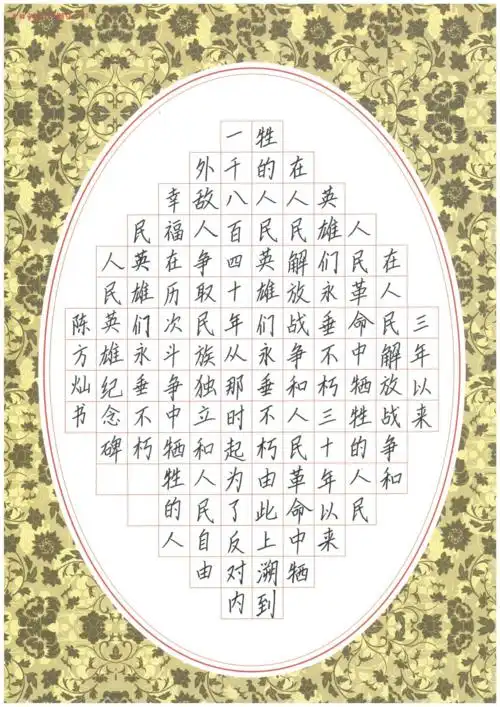 三年以来
在人民解放战争和
人民革命中牺牲的人民
英雄们永垂不朽三十年以来
在人民解放战争和人民革命中牺
牲的人民英雄们永垂不朽由此上溯到
一千八百四十年从那时起为了反对内
外敌人争取民族独立和人民自由
幸福在历次斗争中牺牲的人
民英雄们永垂不朽
人民英雄纪念碑
陈方灿书